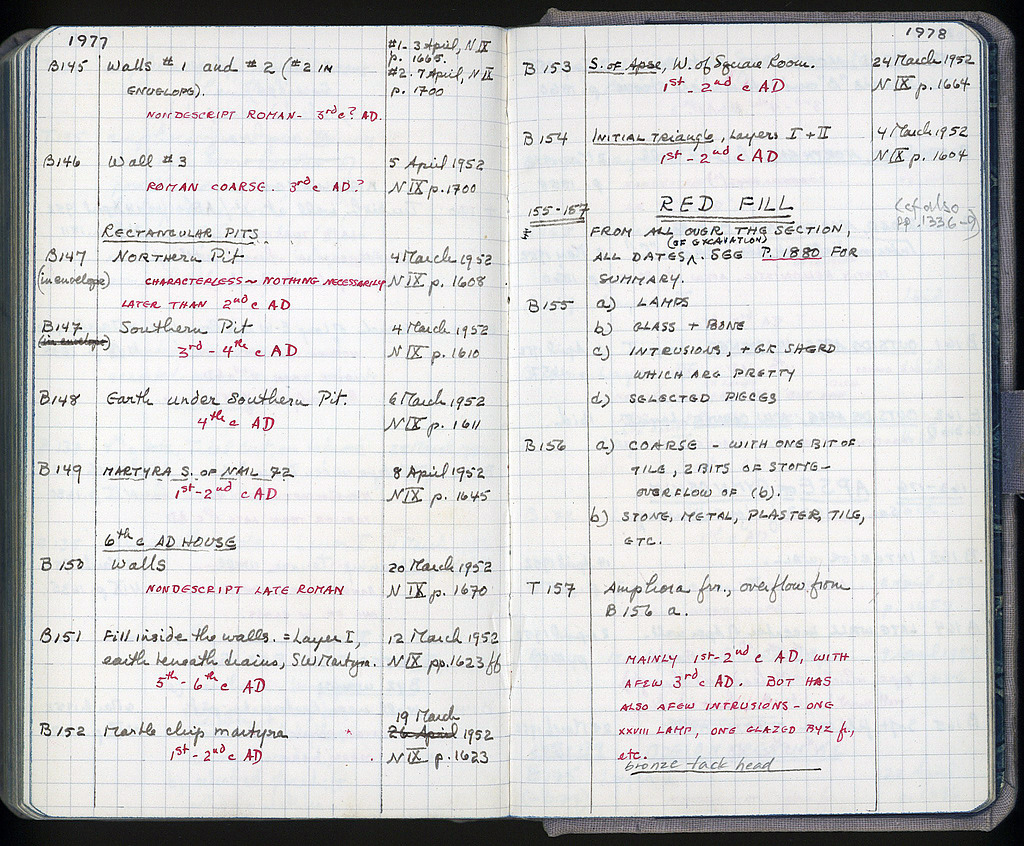 1977
B145 Walls #1 and #2 (#2 IN
ENVELOPE).
#1- 3 April, N IX
p. 1665.
#2- 7 April, N IX
p. 1700
NONDESCRIPT ROMAN- 3rd c? AD.
B146 Wall #3 5 April 1952
ROMAN COARSE. 3rd c AD? N IX p. 1700
RECTANGULAR PITS
B147 NORTHERN Pit 4 March 1952
(in envelope) CHARACTERLESS ~ NOTHING NECESSARILY N IX p. 1608
LATER THAN 2nd c AD
B147 Southern Pit 4 March 1952
(in envelope) 3rd - 4th c AD N IX p. 1610
B148 Earth under Southern Pit. 6 March 1952
4th c AD N IX p. 1611
B149 MARTYRA S. OF NAIL 72 8 April 1952
1st-2nd c AD N IX p. 1645
6th c AD HOUSE
B150 Walls 20 March 1952
NONDESCRIPT LATE ROMAN N IX p. 1670
B151 Fill inside the walls. = Layer I, 12 March 1952
earth beneath drains, SW Martyra. N IX pp. 1623 ff
5th - 6th c AD
19 March
B152 Marble chip martyra 26 April 1952
1st - 2nd c AD N IX p. 1623
1978
B153 S. of Apse, W. of Square Room. 24 March 1952
1st - 2nd c AD N IX p. 1664
B154 INITIAL Triangle, Layers I + II 4 March 1952
1st - 2nd c AD N IX p. 1604
155-157 RED FILL (cf also
pp. 1336-9)
FROM ALL OVER THE SECTION,
(OF EXCAVATION)
ALL DATES. SEE P. 1880 FOR
SUMMARY.
B155 a) LAMPS
b) GLASS + BONE
c) INTRUSIONS, + GK SHERD
WHICH ARE PRETTY
d) SELECTED PIECES
B156 a) COARSE - WITH ONE BIT OF
TILE, 2 BITS OF STONE-
OVERFLOW OF (b).
b) STONE, METAL, PLASTER, TILE,
ETC.
T 157 Amphora frr., overflow from
B 156 a.
MAINLY 1st-2nd c AD, WITH
A FEW 3rd c AD. BOT HAS
ALSO A FEW INTRUSIONS - ONE
XXVIII LAMP, ONE GLAZED BYZ fr.,
etc.
bronze tack head